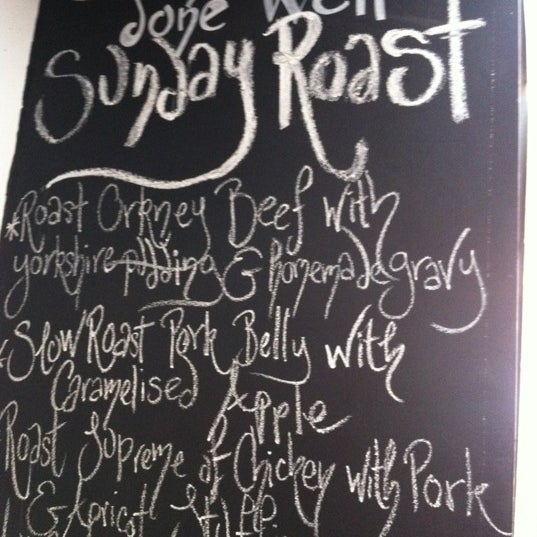 done well
Sunday Roast
*Roast Orkney Beef with
yorkshire pudding & homemade gravy
Slow Roast Pork Belly with
Caramelised Apple
Roast Supreme of Chickey with Pork
& Apricot